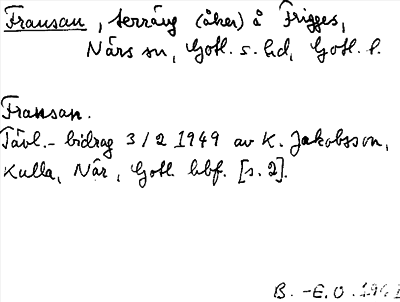 Fransan, terräng (åker) å Frigges,
Närs sn, Gotl. s. hd, Gotl. l.
Fransan.
Tävl.-bidrag 3/2 1949 av K. Jakobsson,
Kulla, När, Gotl. hbf. [s. 2].
B.-E.O.